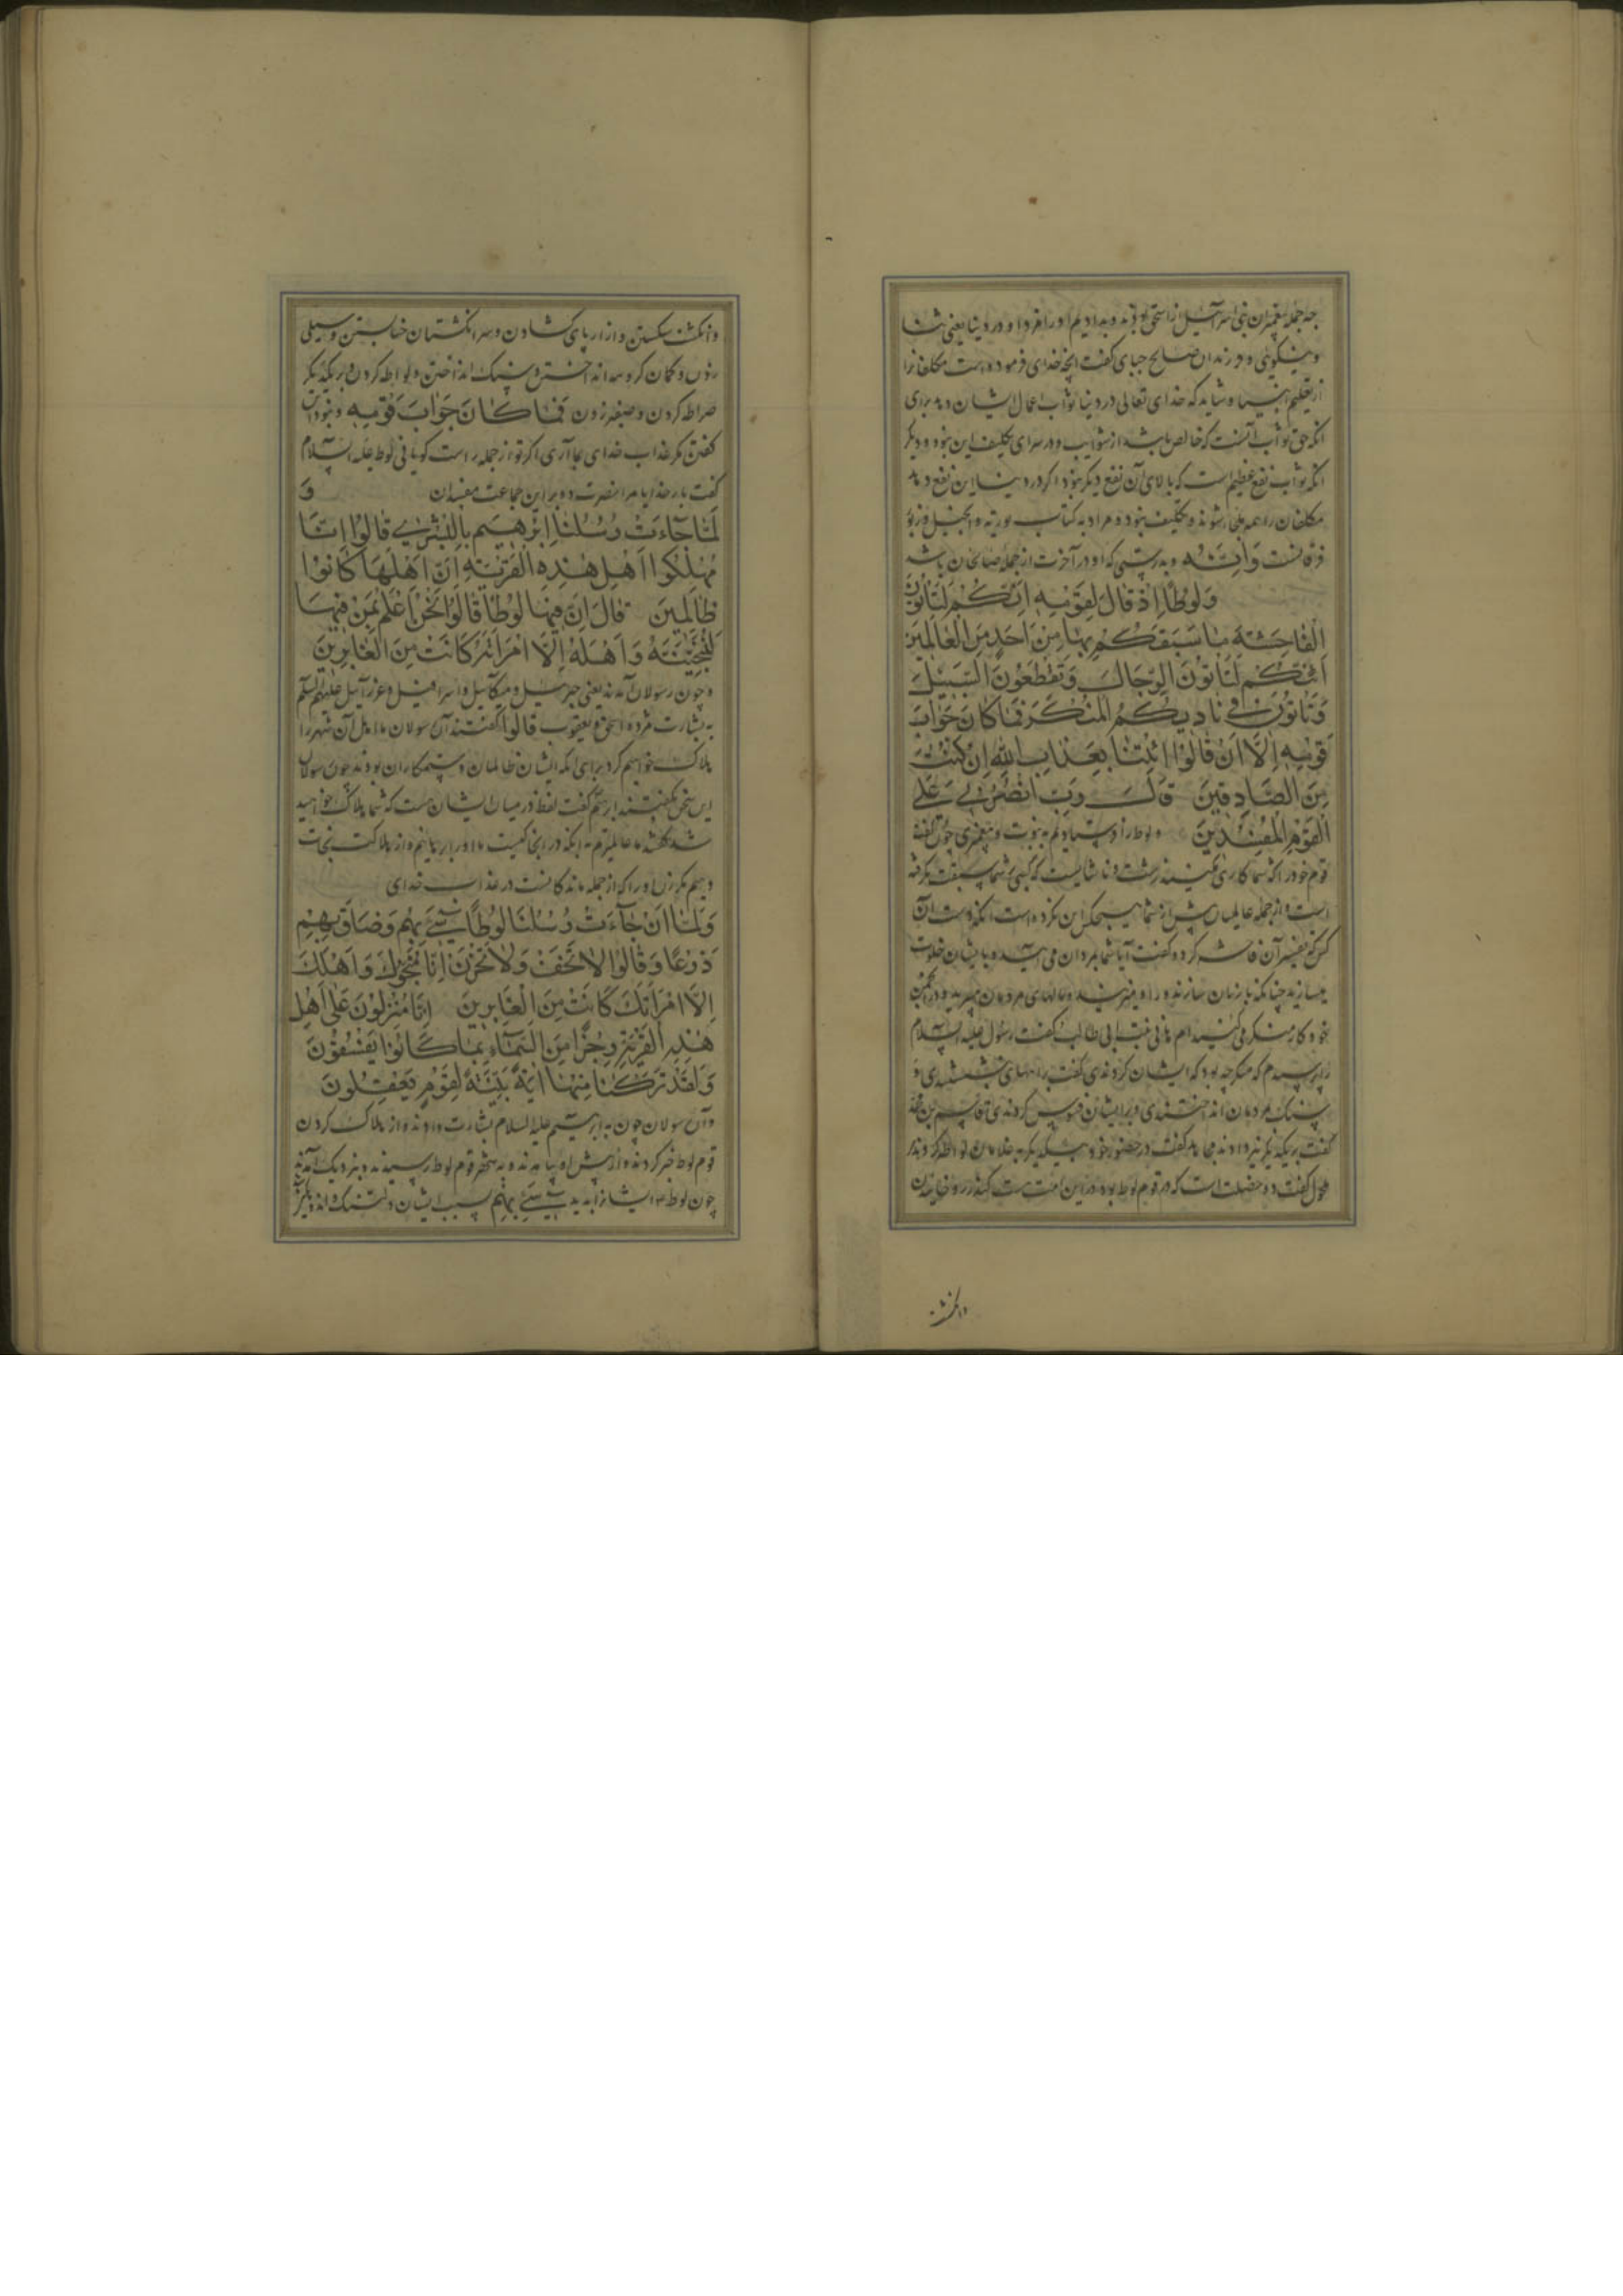 جه جمله پیغمبران بنی اسرآئیل از اسحق بودند و بدادیم او را مزد او در دنیا یعنی ثنا
و نیکویی و فرزندان صالح جبای گفت آنچه خدای فرموده است مکلفانرا
از تعظیم انبیا و شاید که خدای تعالی در دنیا ثواب اعمال ایشان دهد برای
انکه حق ثواب آنست که خالص باشد از شوایب و در سرای تکلیف این نبود و دیگر
انکه ثواب نفع عظیم است که بالای آن نفع دیگر نبود اگر در دنیا این نفع دهد
مکلفان را همه ملجا شوند و تکلیف نبود و مراد به کتاب تورته و انجیل و زبور
فرقانست وَاِنَّهُ و بدرستی که او در آخرت از جمله صالحان باشد
وَلُوطًا اِذْ قَالَ لِقَوْمِهِ اِنَّكُمْ لَتَأْتُونَ
الْفَاحِشَةَ مَا سَبَقَكُمْ بِهَا مِنْ اَحَدٍ مِنَ الْعَالَمِينَ
اَئِنَّكُمْ لَتَأْتُونَ الرِّجَالَ وَتَقْطَعُونَ السَّبِيلَ
وَتَأْتُونَ فِي نَادِيكُمُ الْمُنْكَرَ فَمَا كَانَ جَوَابَ
قَوْمِهِ اِلَّا اَنْ قَالُوا ائْتِنَا بِعَذَابِ اللهِ اِنْ كُنْتَ
مِنَ الصَّادِقِينَ قَالَ رَبِّ انْصُرْنِي عَلَى
الْقَوْمِ الْمُفْسِدِينَ و لوط را فرستادیم به نبوت و پیغمبری چون گفت
قوم خود را که شما کاری میکنید زشت و ناشایست که کسی بر شما سبقت نگرفته
است و از جمله عالمیان پیش از شما هیچکس این نکرده است
گفت آیا شما بمردان می آیید و با ایشان خلوت
میسازید چنانکه با زنان سازند و راه میزنید و مالهای مردمان میبرید و در انجمن
خود کار منکر می کنید ام هانی بنت ابی طالب گفت رسول علیه السلام
را پرسیدم که منکر چه بود که ایشان کردندی گفت براههای بنشستندی و
سنگ بمردمان انداختندی و بر ایشان فسوس کردندی قاسم بن محمد
گفت بر یکدیگر تیز دادند مجاهد گفت در حضور خود بیکدیگر به غلامان لواطه کردند
مکحول گفت ده خصلت است که در قوم لوط بود و در این امت هست کندر رو خاییدن
وانگشت
وانگشت شکستن و ازار پای گشادن و سر انگشتان خنا بستن و سیلی
زدن و کمان گروهه انداختن و سنگ انداختن و لواطه کردن و بر یکدیگر
ضراطه کردن و صفیر زدن فَمَا كَانَ جَوَابَ قَوْمِهِ و نبود این
گفتن مگر عذاب خدای بما آری اگر تو از جمله راست گویانی لوط علیه السلام
گفت بار خدایا مرا نصرت ده بر این جماعت مفسدان وَ
لَمَّا جَاءَتْ رُسُلُنَا اِبْرٰهِيمَ بِالْبُشْرٰى قَالُوا اِنَّا
مُهْلِكُوا اَهْلِ هٰذِهِ الْقَرْيَةِ اِنَّ اَهْلَهَا كَانُوا
ظَالِمِينَ قَالَ اِنَّ فِيهَا لُوطًا قَالُوا نَحْنُ اَعْلَمُ بِمَنْ فِيهَا
لَنُنَجِّيَنَّهُ وَاَهْلَهُ اِلَّا امْرَاَتَهُ كَانَتْ مِنَ الْغَابِرِينَ
و چون رسولان آمدند یعنی جبرئیل و میکائیل و اسرافیل و عزرائیل علیهم السلم
به بشارت مژده اسحق و یعقوب قالوا گفتند آن رسولان ما اهل آن شهر را
هلاک خواهیم کرد برای انکه ایشان ظالمان و ستمکاران بودند چون رسولان
این سخن بگفتند ابرهیم گفت لوط در میان ایشان است که شما هلاک خواهید
شد گفتند ما عالمتریم به انکه در انجا کیست ما او را برهانیم و از هلاکت نجات
دهیم مگر زن او را که از جمله ماندگانست در عذاب خدای
وَلَمَّا اَنْ جَاءَتْ رُسُلُنَا لُوطًا سِيءَ بِهِمْ وَضَاقَ بِهِمْ
ذَرْعًا وَقَالُوا لَا تَخَفْ وَلَا تَحْزَنْ اِنَّا مُنَجُّوكَ وَاَهْلَكَ
اِلَّا امْرَاَتَكَ كَانَتْ مِنَ الْغَابِرِينَ اِنَّا مُنْزِلُونَ عَلٰى اَهْلِ
هٰذِهِ الْقَرْيَةِ رِجْزًا مِنَ السَّمَاءِ بِمَا كَانُوا يَفْسُقُونَ
وَلَقَدْ تَرَكْنَا مِنْهَا اٰيَةً بَيِّنَةً لِقَوْمٍ يَعْقِلُونَ
و آن رسولان چون به ابرهیم علیه السلام بشارت دادند و از هلاک کردن
قوم لوط خبر کردند و از پیش او بیامدند و به شهر قوم لوط رسیدند و بنزدیک آمدند
چون لوط ایشانرا بدید سِيءَ بِهِم بسبب ایشان دلتنگ و اندوهگین